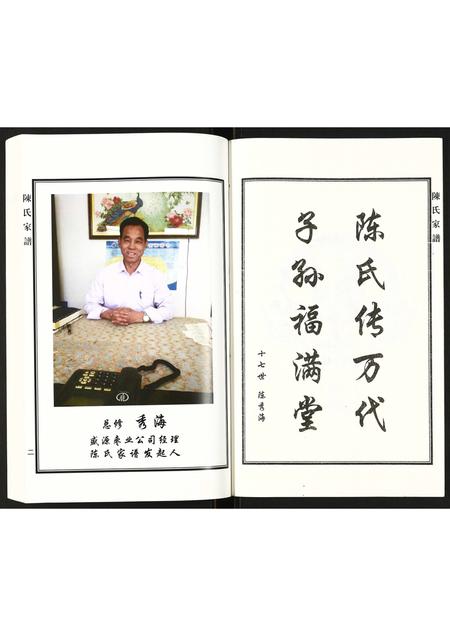 陳氏家譜
总修 秀海
盛源枣业公司经理
陈氏家谱发起人
二
陳氏家譜
陈氏传万代
子孙福满堂
十七世 陈秀海